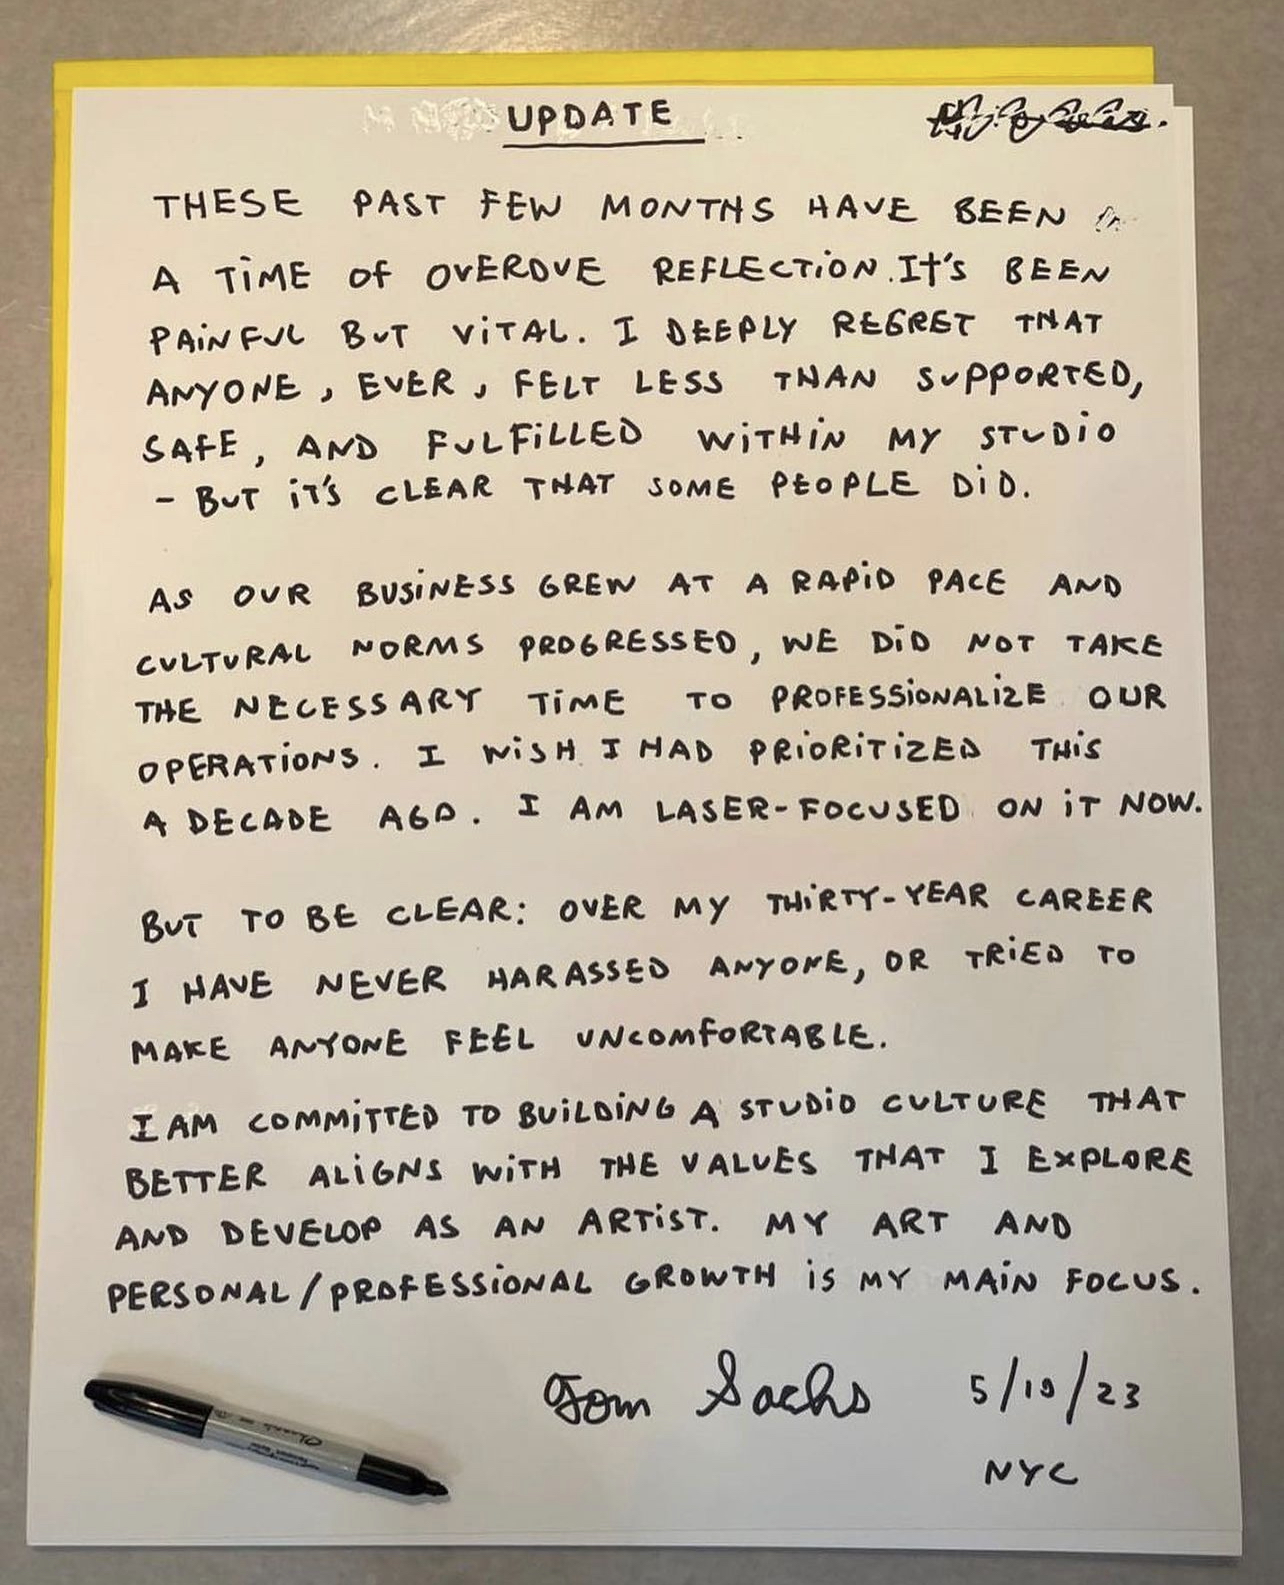 UPDATE
THESE PAST FEW MONTHS HAVE BEEN
A TiME OF OVERDUE REFLECTiON. It's BEEN
PAiNFUL BUT ViTAL. I DEEPLY REGRET THAT
ANYONE, EVER, FELT LESS THAN SUPPORTED,
SAFE, AND FULFiLLED WiTHiN MY STUDiO
- BUT iT'S CLEAR THAT SOME PEOPLE DiD.
AS OUR BUSiNESS GREW AT A RAPiD PACE AND
CULTURAL NORMS PROGRESSED, WE DiD NOT TAKE
THE NECESSARY TiME TO PROFESSiONALiZE OUR
OPERATiONS. I WiSH I HAD PRiORiTiZED THiS
A DECADE AGO. I AM LASER-FOCUSED ON iT NOW.
BUT TO BE CLEAR: OVER MY THiRTY-YEAR CAREER
I HAVE NEVER HARASSED ANYONE, OR TRiED TO
MAKE ANYONE FEEL UNCOMFORTABLE.
I AM COMMiTTED TO BUiLDiNG A STUDiO CULTURE THAT
BETTER ALiGNS WiTH THE VALUES THAT I EXPLORE
AND DEVELOP AS AN ARTiST. MY ART AND
PERSONAL/PROFESSiONAL GROWTH iS MY MAiN FOCUS.
Tom Sachs 5/19/23
NYC